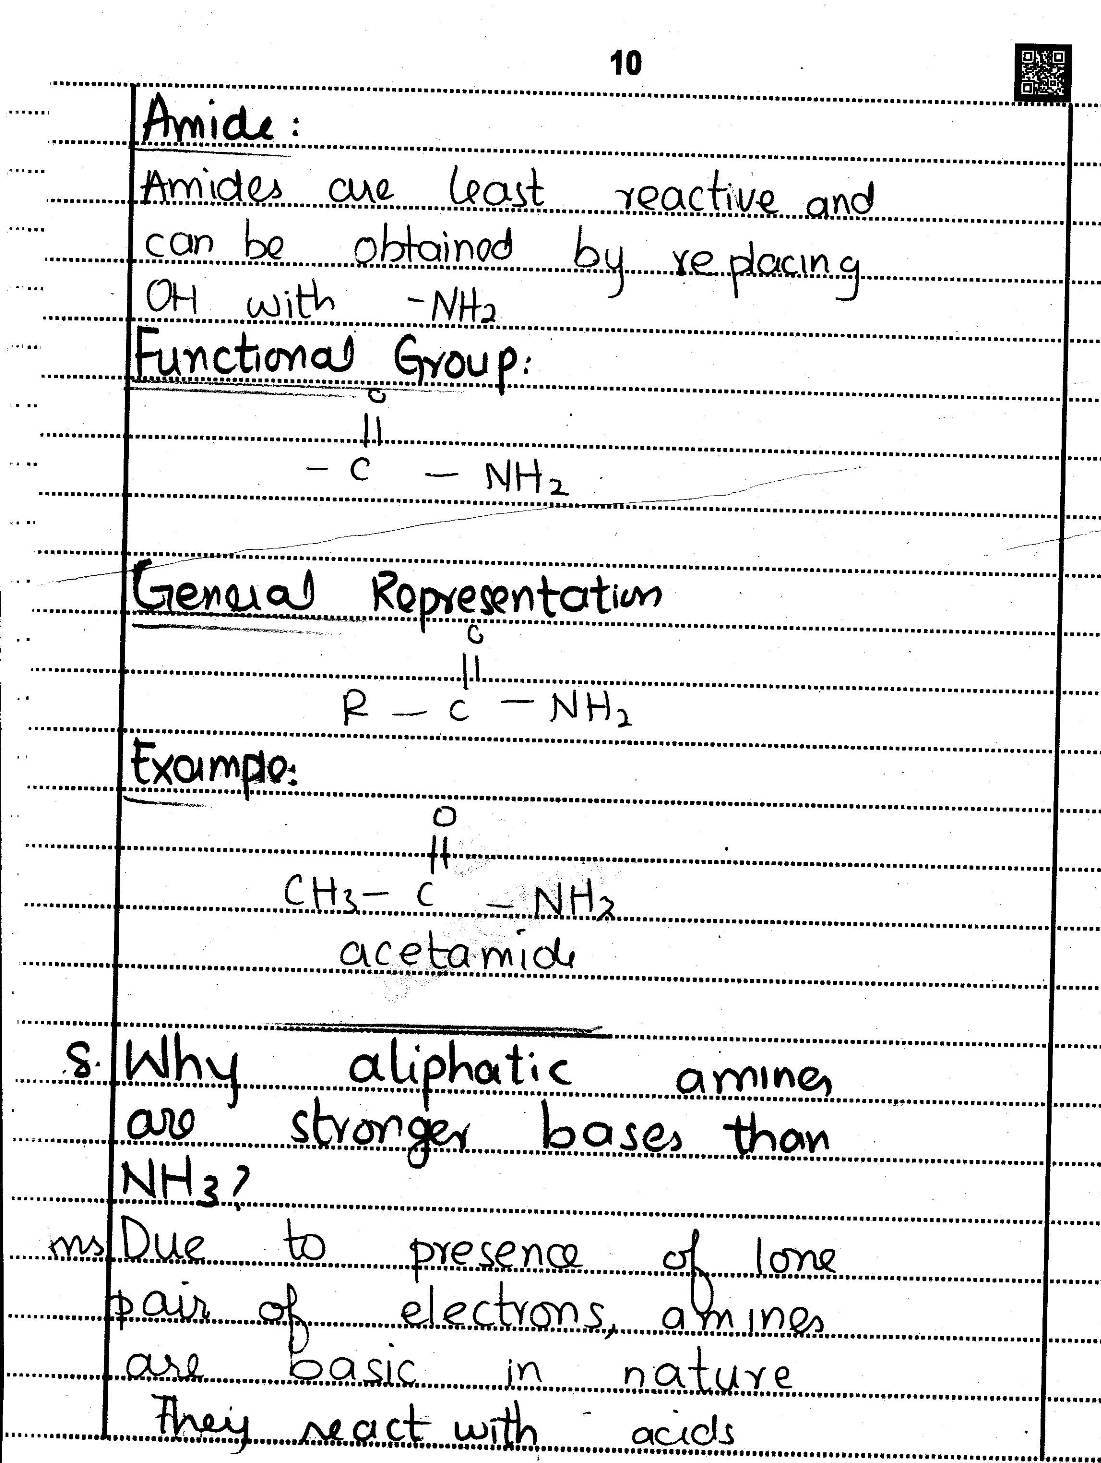 10
Amide:
Amides are least reactive and
can be obtained by replacing
OH with -NH2
Functional Group:
O
||
- C - NH2
General Representation
O
||
R - C - NH2
Example:
O
||
CH3 - C - NH2
acetamide
8. Why aliphatic amines
are stronger bases than
NH3?
ns Due to presence of lone
pair of electrons, amines
are basic in nature
They react with acids